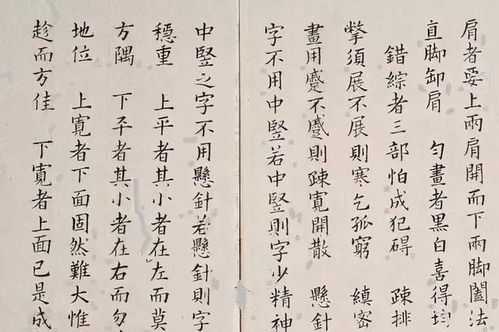 肩者要上兩肩開而下兩脚闔法
直脚卸肩 勻畫者黑白喜得均
錯綜者三部怕成犯碍 疎排
撆須展不展則寒乞孤窮 縝密
畫用蹙不蹙則疎寬開散 懸針
字不用中竪若中竪則字少精神
中竪之字不用懸針若懸針則字
穩重 上平者其小者在左而莫
方隅 下平者其小者在右而勿
地位 上寬者下面固然難大惟
趁而方佳 下寬者上面已是成